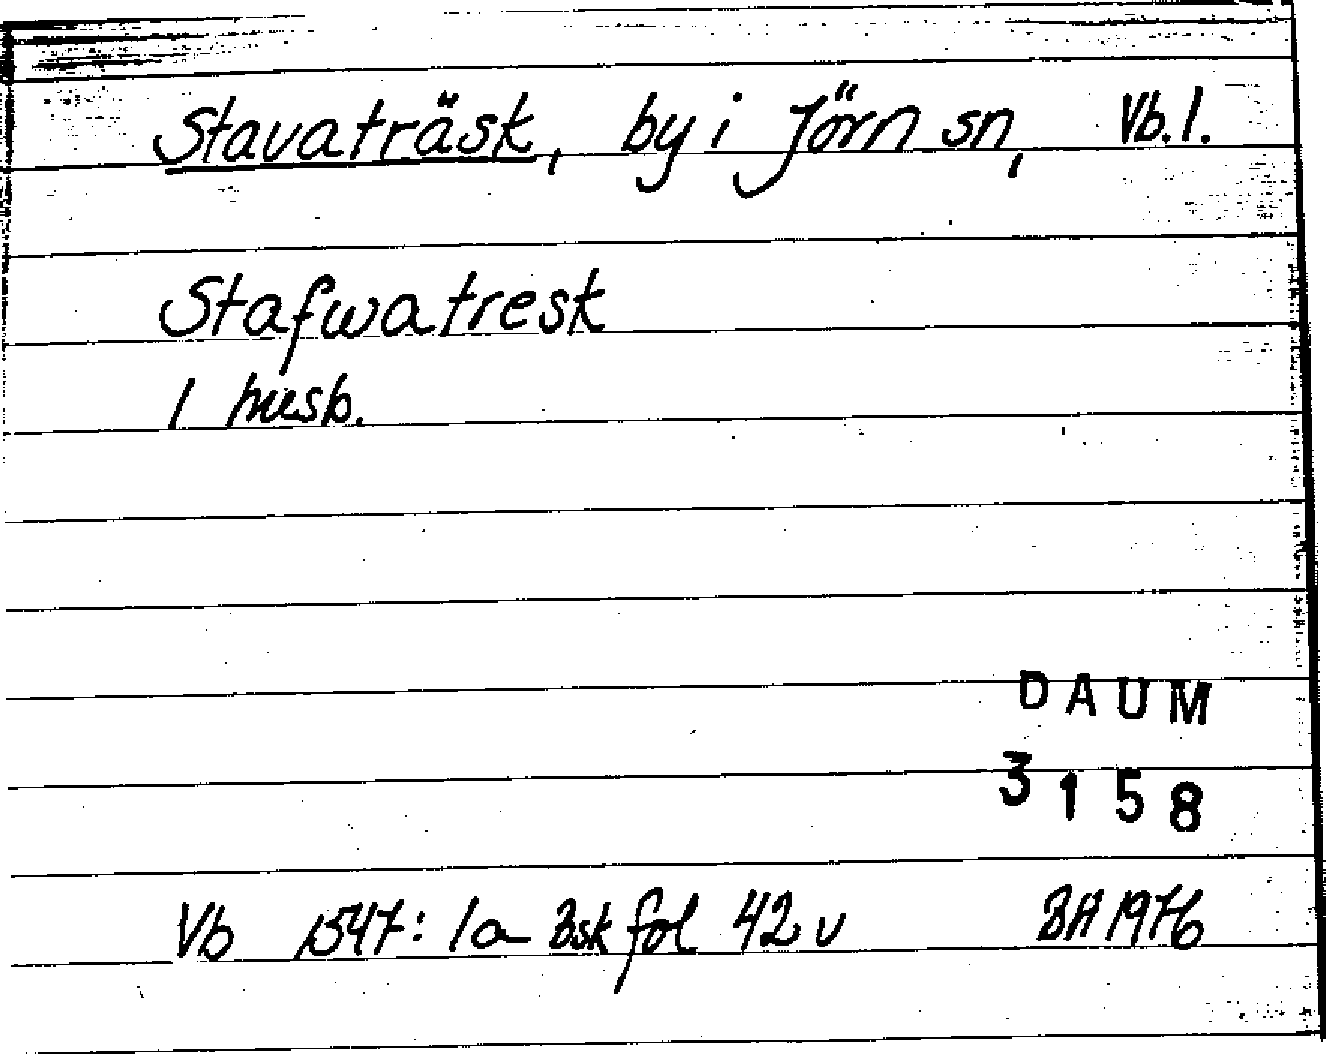 Stavaträsk, by i Jörn sn, Vb.l.
Stafwatresk
1 husb.
DAUM
3158
Vb 1547: 1a Bsk fol 42 v BA 1976